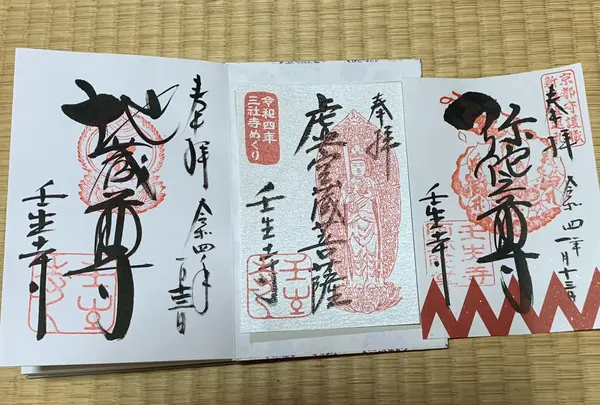 奉拝
令和四年
一月十三日
地蔵尊
壬生寺
奉拝
虚空蔵菩薩
令和四年
三社寺めぐり
壬生寺
京都守護職
奉拝
令和四年一月十三日
弥陀三尊
壬生寺